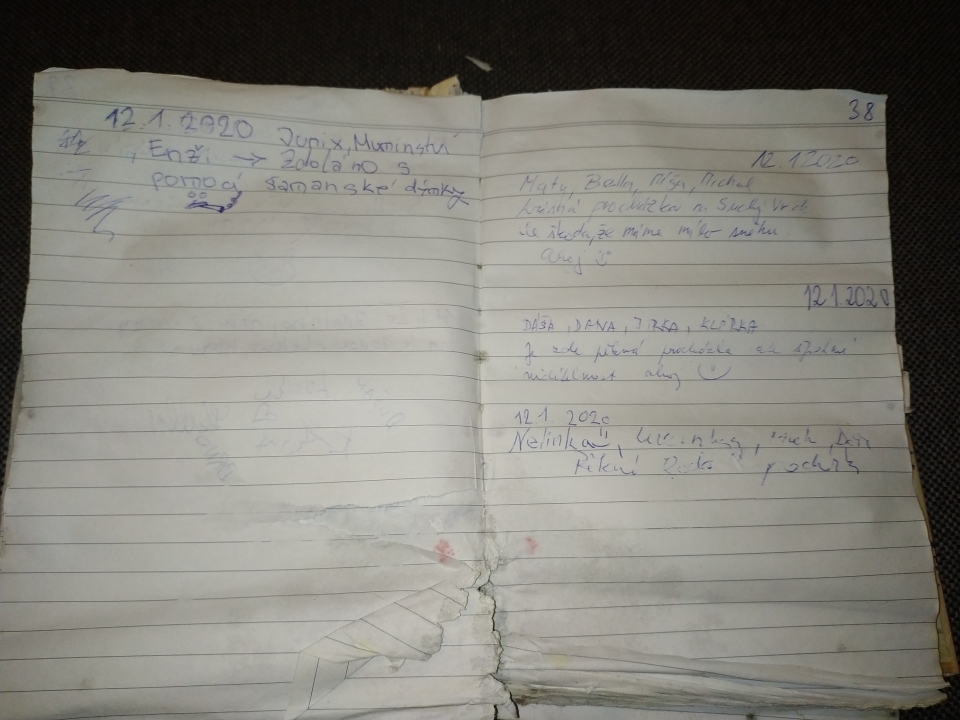 12.1.2020 Junix, Muminství
, Enži → Zdoláno s
pomocí šamanské dýmky
38
12.12020
Maty, Bella, Míša, Michal
krásná procházka na Suchý Vrch
je škoda, že máme málo sněhu.
Ahoj
12.1.2020
DÁŠA, DANA, JIRKA, KLÁRKA
Je zde pěkná procházka ale
viditelnost ahoj
12.1 2020
Nelinka
Pěkná